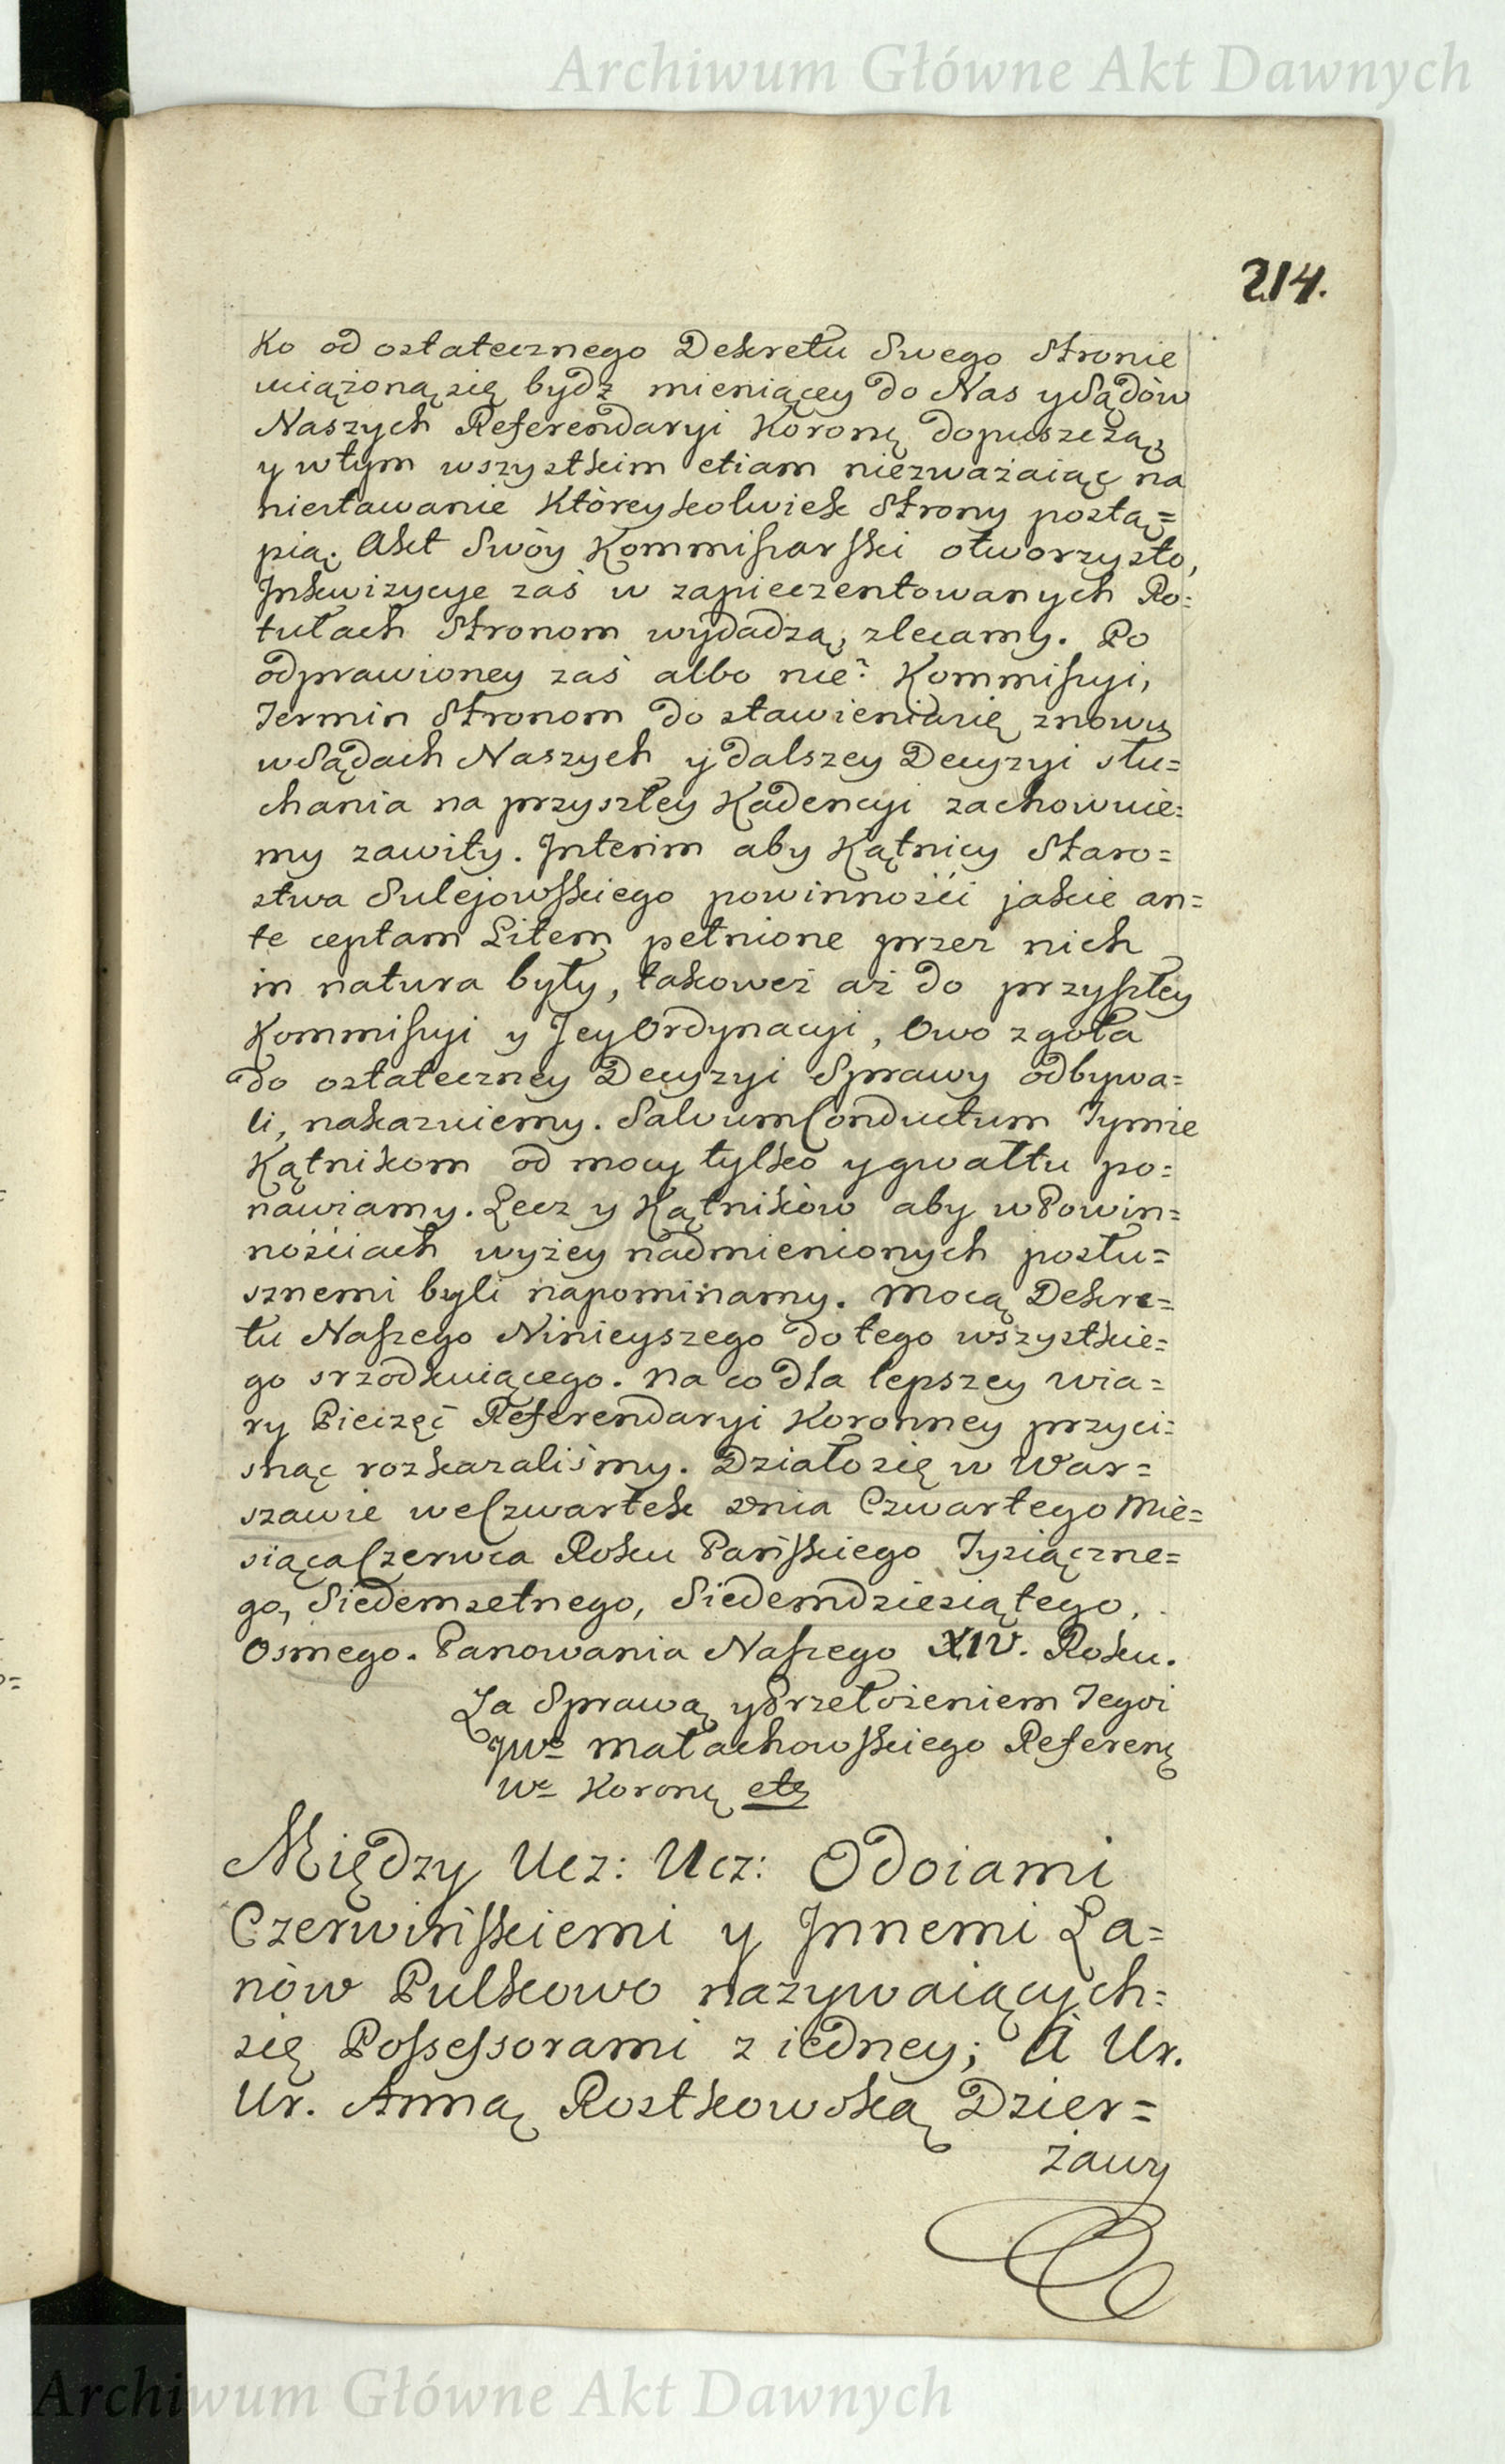 Archiwum Główne Akt Dawnych
214.
ko od ostatecznego Dekretu Swego Stronie
uciążoną się bydź mieniącey do Nas y Sądów
Naszych Referendaryi Koronę dopuszczą,
y w tym wszystkim etiam niezważaiąc na
niestawanie Któreykolwiek Strony postą=
pią. Akt Swóy Kommissarski otworzysto,
Inkwizycye zaś w zapieczentowanych Ro=
tułach Stronom wydadzą, zlecamy. Po
odprawioney zaś albo nie? Kommissyi,
Termin Stronom do stawienia się znowu
w Sądach Naszych y dalszey Decyzyi słu=
chania na przyszłey Kadencyi zachowuie=
my zawity. Interim aby Kątnicy Staro=
stwa Sulejowskiego powinności jakie an=
te ceptam Litem pełnione przez nich
in natura były, takoweż aż do przyszłey
Kommissyi y Jey Ordynacyi, Owo zgoła
do ostateczney Decyzyi Sprawy odbywa=
li, nakazuiemy. Salvum Conductum Tymże
Kątnikom od mocy tylko y gwałtu po=
nawiamy. Lecz y Kątników aby w Powin=
nościach wyżey nadmienionych posłu=
sznemi byli napominamy. Mocą Dekre=
tu Naszego Ninieyszego do tego wszystkie=
go srzodkuiącego. Na co dla lepszey wia=
ry Pieczęć Referendaryi Koronney przyci=
snąć rozkazaliśmy. Działo się w War=
szawie we Czwartek dnia Czwartego Mie=
siąca Czerwca Roku Pańskiego Tysiączne=
go, Siedemsetnego, Siedemdziesiątego,
Osmego. Panowania Naszego XIV. Roku.
Za Sprawą y Przełożeniem Tegoż
JWo Małachowskiego Referenę
We Koronę etc
Między Ucz: Ucz: Odoiami
Czerwińskiemi y Innemi Ła=
nów Pulkowo nazywaiących=
się Possessorami z iedney; A Ur.
Ur. Anną Rostkowską Dzier=
żawy
Archiwum Główne Akt Dawnych